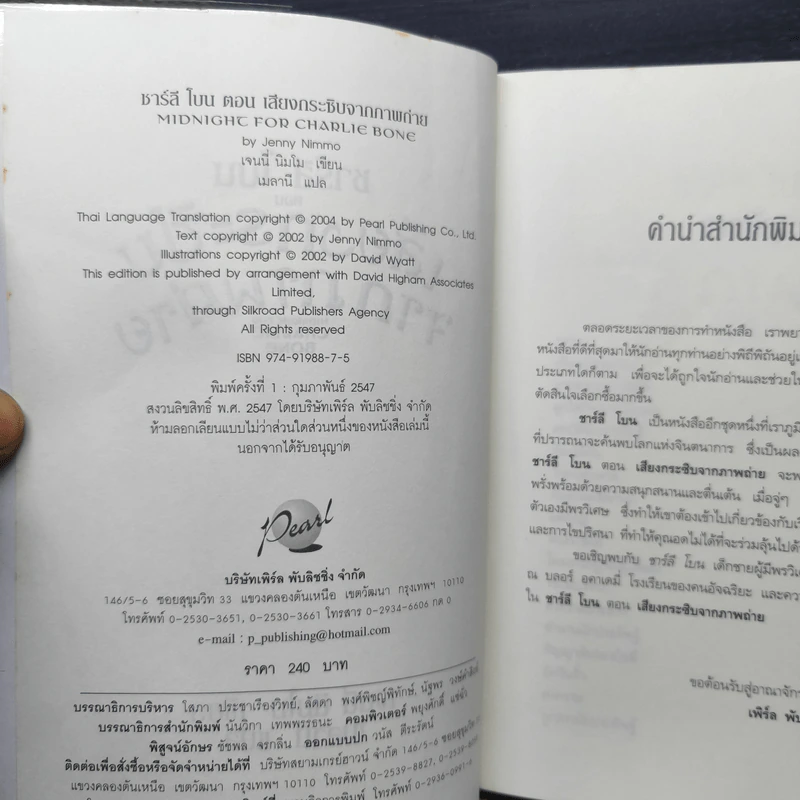 ชาร์ลี โบน ตอน เสียงกระซิบจากภาพถ่าย
MIDNIGHT FOR CHARLIE BONE
by Jenny Nimmo
เจนนี่ นิมโม เขียน
เมลานี แปล
Thai Language Translation copyright © 2004 by Pearl Publishing Co., Ltd.
Text copyright © 2002 by Jenny Nimmo
Illustrations copyright © 2002 by David Wyatt
This edition is published by arrangement with David Higham Associates
Limited,
through Silkroad Publishers Agency
All Rights reserved
ISBN 974-91988-7-5
พิมพ์ครั้งที่ 1 : กุมภาพันธ์ 2547
สงวนลิขสิทธิ์ พ.ศ. 2547 โดยบริษัทเพิร์ล พับลิชชิ่ง จำกัด
ห้ามลอกเลียนแบบไม่ว่าส่วนใดส่วนหนึ่งของหนังสือเล่มนี้
นอกจากได้รับอนุญาต
Pearl
บริษัทเพิร์ล พับลิชชิ่ง จำกัด
146/5-6 ซอยสุขุมวิท 33 แขวงคลองตันเหนือ เขตวัฒนา กรุงเทพฯ 10110
โทรศัพท์ 0-2530-3651, 0-2530-3661 โทรสาร 0-2934-6606 กด 0
e-mail : p_publishing@hotmail.com
ราคา 240 บาท
บรรณาธิการบริหาร โสภา ประชาเรืองวิทย์, ลัดดา พงศ์พิชญ์พิทักษ์, นัฐพร
บรรณาธิการสำนักพิมพ์ นันวิกา เทพพรรธนะ คอมพิวเตอร์ พยุงศักดิ์
พิสูจน์อักษร ชัชพล จรกลิ่น ออกแบบปก วนัส ตีระรัตน์
ติดต่อเพื่อสั่งซื้อหรือจัดจำหน่ายได้ที่ บริษัทสยามเกรย์ฮาวน์ จำกัด 146/5-6 ซอยสุขุมวิท
แขวงคลองตันเหนือ เขตวัฒนา กรุงเทพฯ 10110 โทรศัพท์ 0-2539-8827,
คำนำสำนักพิม
ตลอดระยะเวลาของการทำหนังสือ เราพยา
หนังสือที่ดีที่สุดมาให้นักอ่านทุกท่านอย่างพิถีพิถันอยู่
ประเภทใดก็ตาม เพื่อจะได้ถูกใจนักอ่านและช่วยให้
ตัดสินใจเลือกซื้อมากขึ้น
ชาร์ลี โบน เป็นหนังสืออีกชุดหนึ่งที่เราภูมิ
ที่ปรารถนาจะค้นพบโลกแห่งจินตนาการ ซึ่งเป็นผล
ชาร์ลี โบน ตอน เสียงกระซิบจากภาพถ่าย จะพ
พรั่งพร้อมด้วยความสนุกสนานและตื่นเต้น เมื่อจู่ๆ
ตัวเองมีพรวิเศษ ซึ่งทำให้เขาต้องเข้าไปเกี่ยวข้องกับ
และการไขปริศนา ที่ทำให้คุณอดไม่ได้ที่จะร่วมลุ้นไปด้
ขอเชิญพบกับ ชาร์ลี โบน เด็กชายผู้มีพรวิ
ณ บลอร์ อคาเดมี่ โรงเรียนของคนอัจฉริยะ และคว
ใน ชาร์ลี โบน ตอน เสียงกระซิบจากภาพถ่าย
ขอต้อนรับสู่อาณาจักร
เพิร์ล พับ